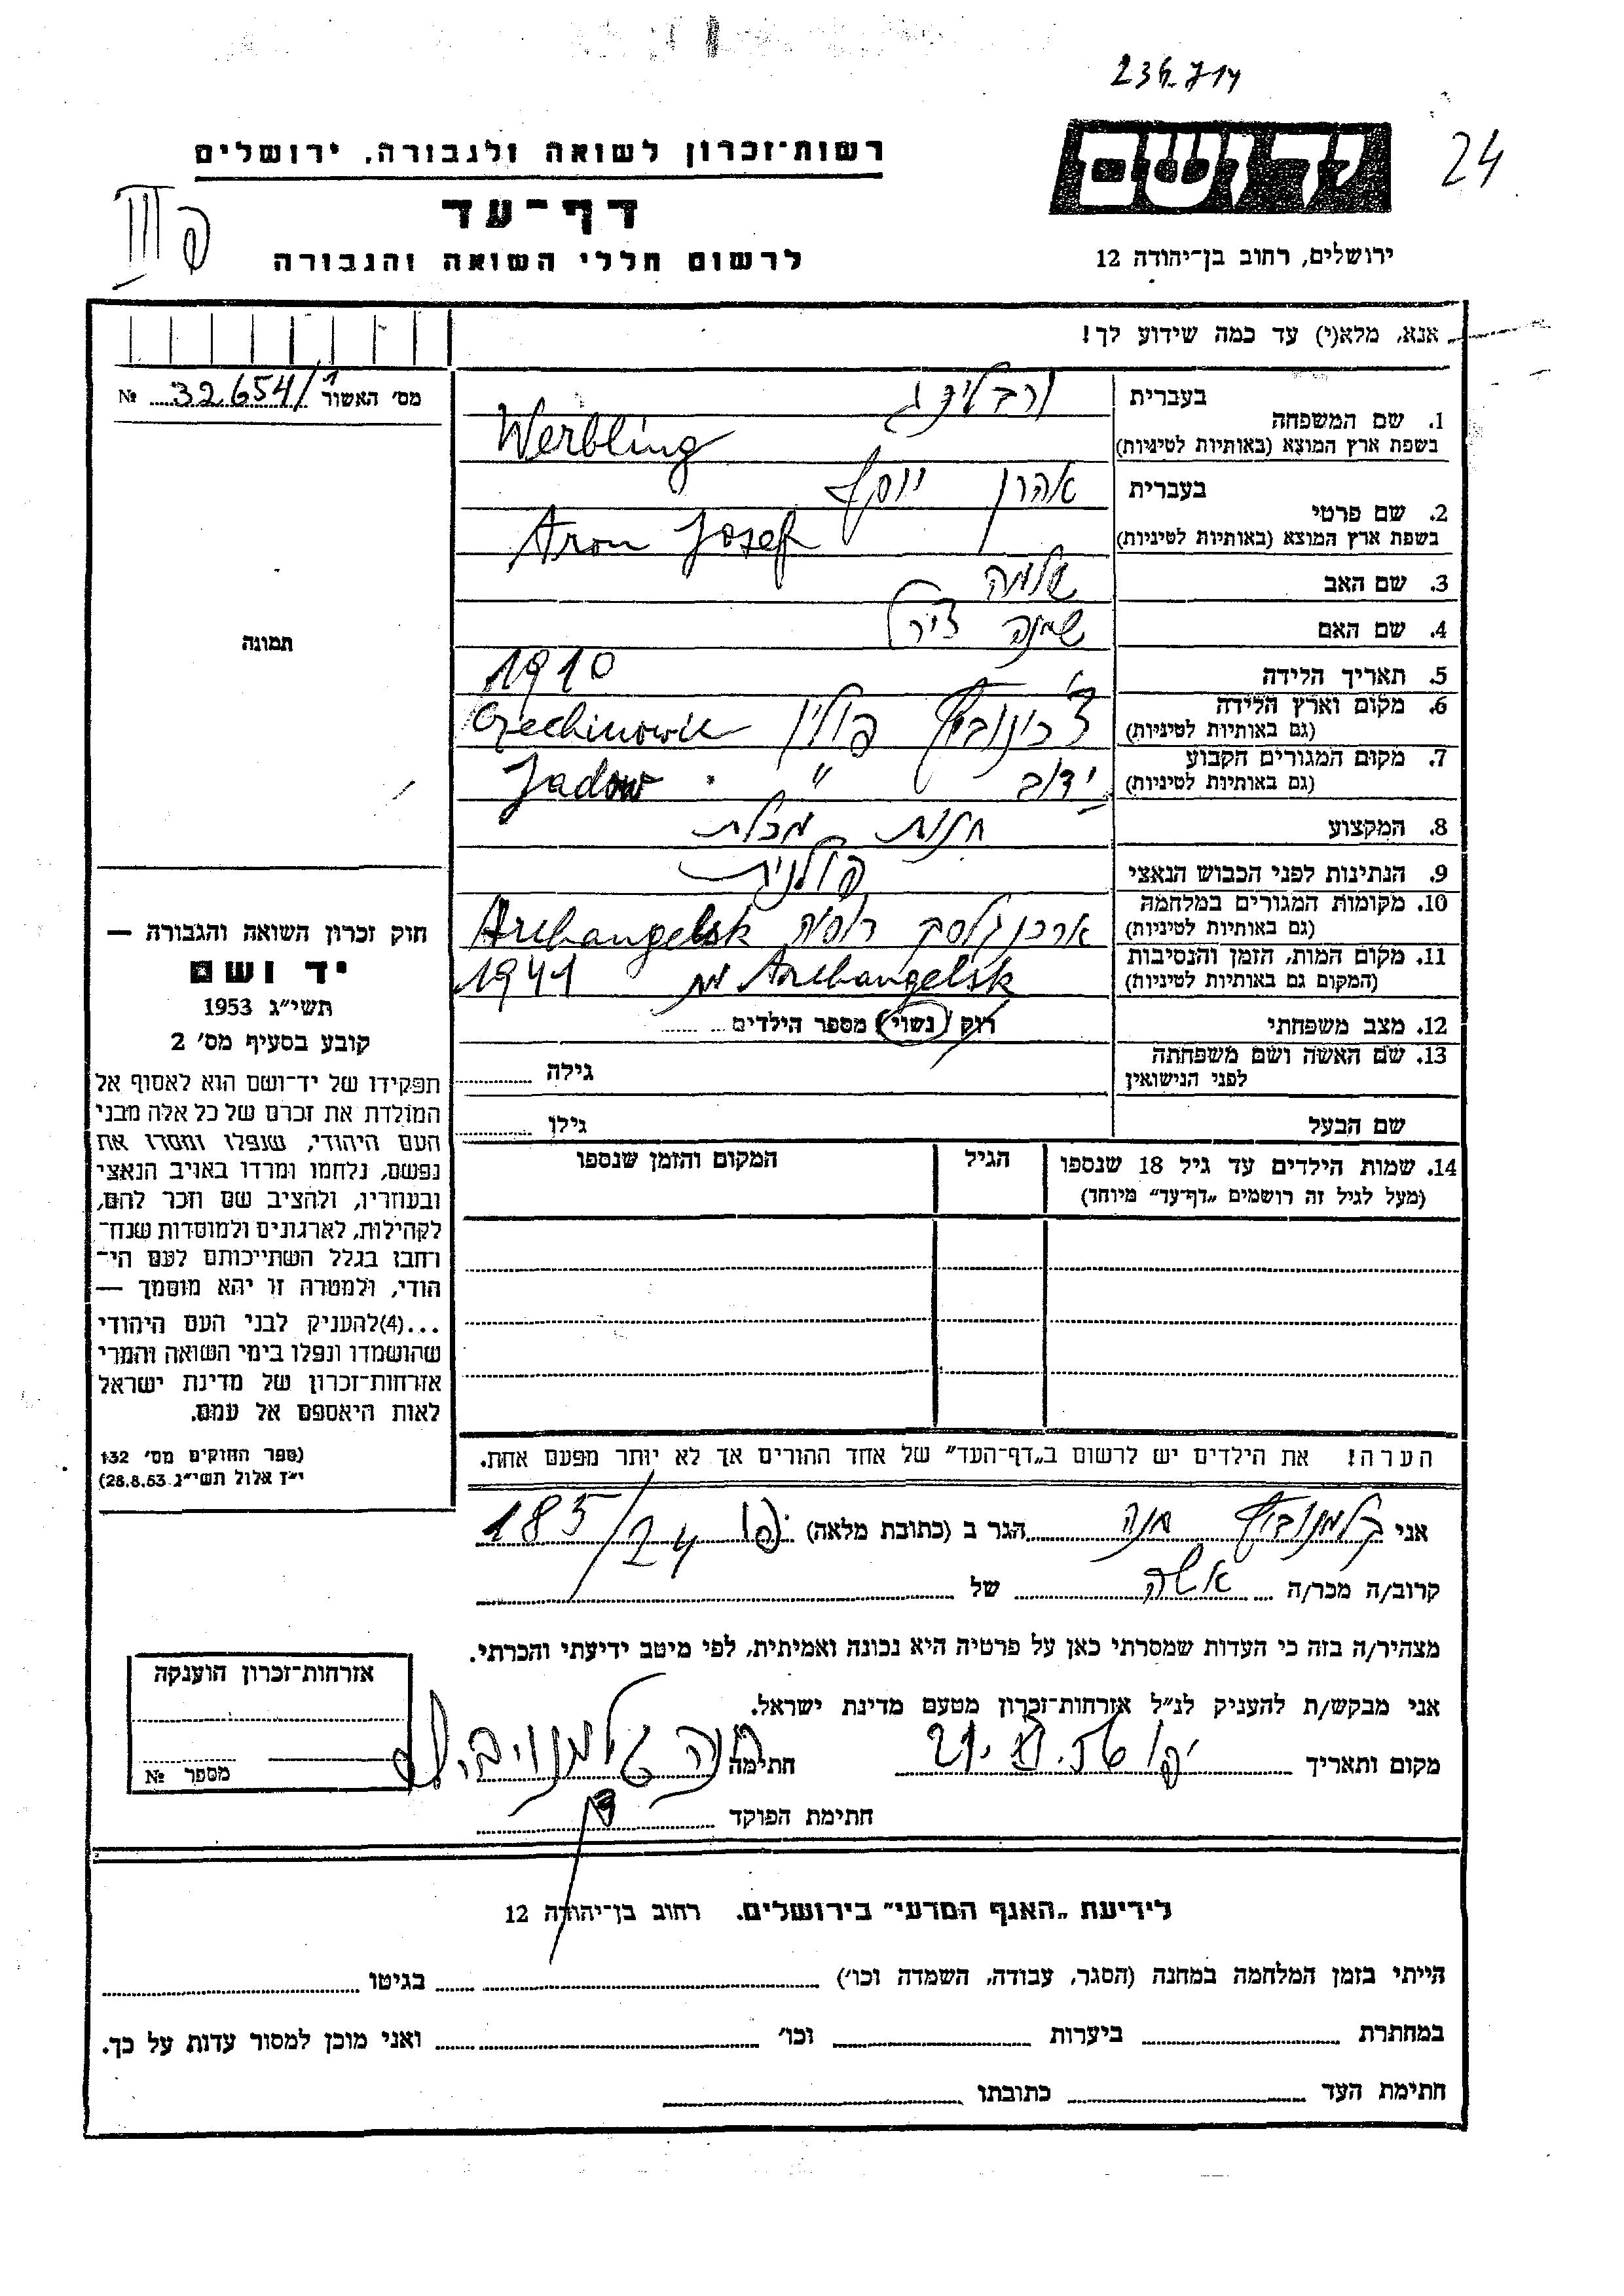 236714
24
יד ושם
רשות־זכרון לשואה ולגבורה, ירושלים
דף־עד
לרשום חללי השואה והגבורה
ירושלים, רחוב בן־יהודה 12
פ III
אנא, מלא(י) עד כמה שידוע לך!
מס׳ האשור 32654/1 №
בעברית ורבלינג
1. שם המשפחה
בשפת ארץ המוצא (באותיות לטיניות) Werbling
בעברית אהרן יוסף
2. שם פרטי
בשפת ארץ המוצא (באותיות לטיניות) Aron Josef
3. שם האב שלמה
4. שם האם
5. תאריך הלידה 1910
6. מקום וארץ הלידה
(גם באותיות לטיניות) פולין
7. מקום המגורים הקבוע
(גם באותיות לטיניות) ידוב " Jadow
8. המקצוע חנות מכלת
9. הנתינות לפני הכבוש הנאצי פולנית
10. מקומות המגורים במלחמה
(גם באותיות לטיניות) ארכנגלסק רוסיה Archangelsk
11. מקום המות, הזמן והנסיבות
(המקום גם באותיות לטיניות) Archangelsk מת 1941
12. מצב משפחתי רוק / נשוי / מספר הילדים
13. שם האשה ושם משפחתה
לפני הנישואין
גילה
שם הבעל גילו
14. שמות הילדים עד גיל 18 שנספו
(מעל לגיל זה רושמים „דף־עד״ מיוחד)
הגיל
המקום והזמן שנספו
תמונה
חוק זכרון השואה והגבורה —
יד ושם
תשי״ג 1953
קובע בסעיף מס׳ 2
תפקידו של יד־ושם הוא לאסוף אל
המולדת את זכרם של כל אלה מבני
העם היהודי, שנפלו ומסרו את
נפשם, נלחמו ומרדו באויב הנאצי
ובעוזריו, ולהציב שם וזכר להם,
לקהילות, לארגונים ולמוסדות שנח־
רחבו בגלל השתייכותם לעם הי־
הודי, ולמטרה זו יהא מוסמך —
...(4)להעניק לבני העם היהודי
שהושמדו ונפלו בימי השואה והמרי
אזרחות־זכרון של מדינת ישראל
לאות היאספם אל עמם.
(ספר החוקים מס׳ 132
י״ז אלול תשי״ג 28.8.53)
הערה! את הילדים יש לרשום ב„דף־העד״ של אחד ההורים אך לא יותר מפעם אחת.
אני חנה הגר ב (כתובת מלאה) יפו 185/24
קרוב/ה מכר/ה אשה של
מצהיר/ה בזה כי העדות שמסרתי כאן על פרטיה היא נכונה ואמיתית, לפי מיטב ידיעתי והכרתי.
אני מבקש/ת להעניק לנ״ל אזרחות־זכרון מטעם מדינת ישראל.
מקום ותאריך יפו חתימה חנה
חתימת הפוקד
אזרחות־זכרון הוענקה
מספר №
לידיעת „האגף המדעי״ בירושלים. רחוב בן־יהודה 12
הייתי בזמן המלחמה במחנה (הסגר, עבודה, השמדה וכו׳) בגיטו
במחתרת ביערות וכו׳ ואני מוכן למסור עדות על כך.
חתימת העד כתובתו